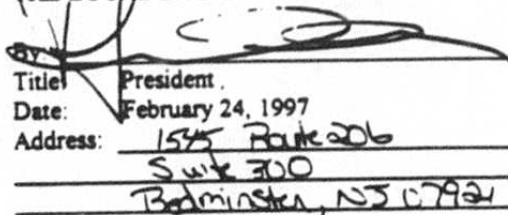 By
Title: President
Date: February 24, 1997
Address: 1545 Route 206
Suite 300
Bedminster, NJ 07921